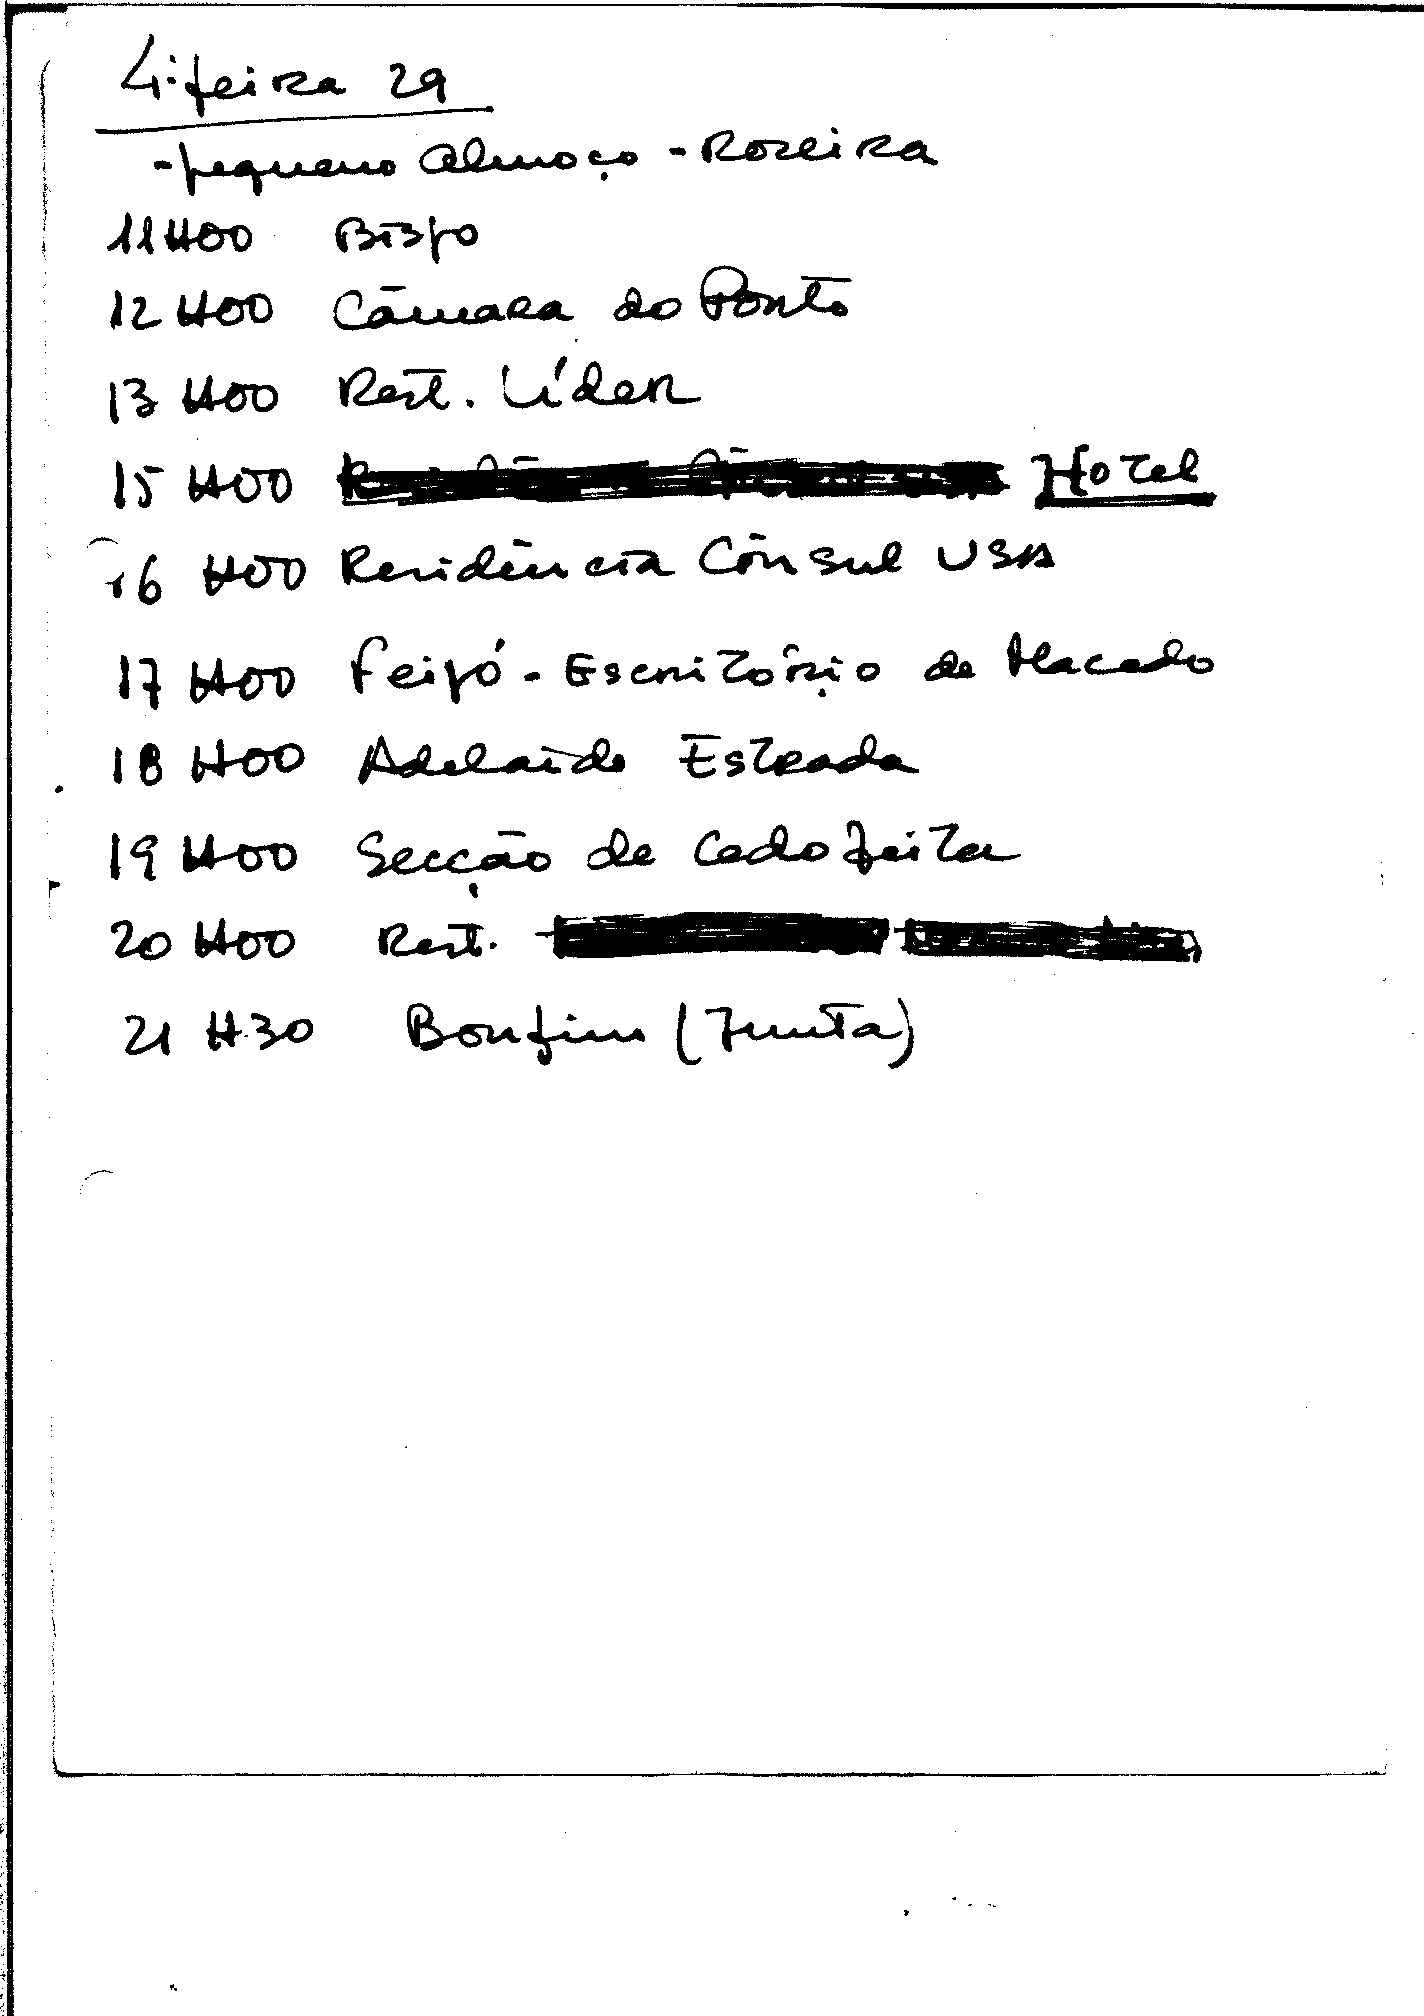 4ª feira 29
- pequeno Almoço - Rozeira
11H00 Bispo
12H00 Câmara do Porto
13H00 Rest. Líder
15H00 Hotel
16H00 Residência Cônsul USA
17H00 Feijó - Escritório de Macedo
18H00 Adelaide Estrada
19H00 Secção de Cedofeita
20H00 Rest.
21H30 Bonfim (Junta)